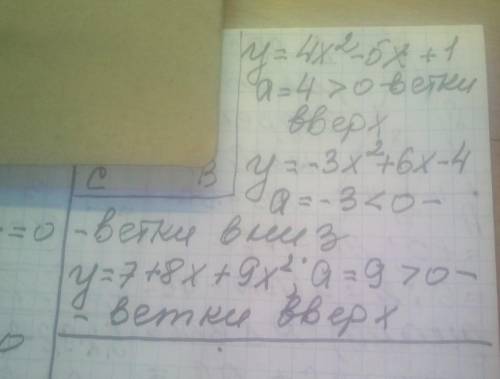 y=4x²-5x+1
a=4>0-ветки
вверх
C B y=-3x²+6x-4
a=-3<0-
=0 -ветки вниз
y=7+8x+9x²; a=9>0-
- ветки вверх